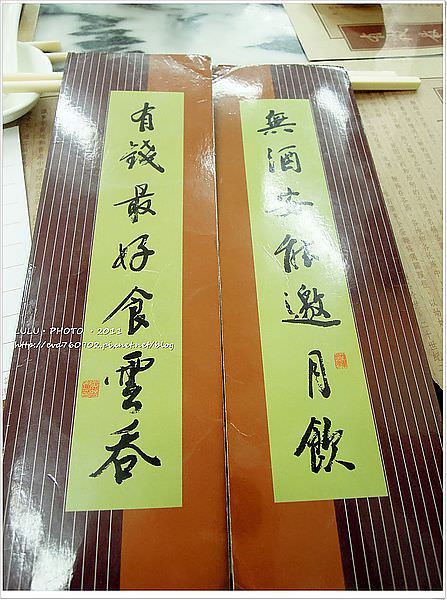 無酒安能邀月飲
有錢最好食雲吞
LULU・PHOTO・2011
http://eva760902.pixnet.net/blog